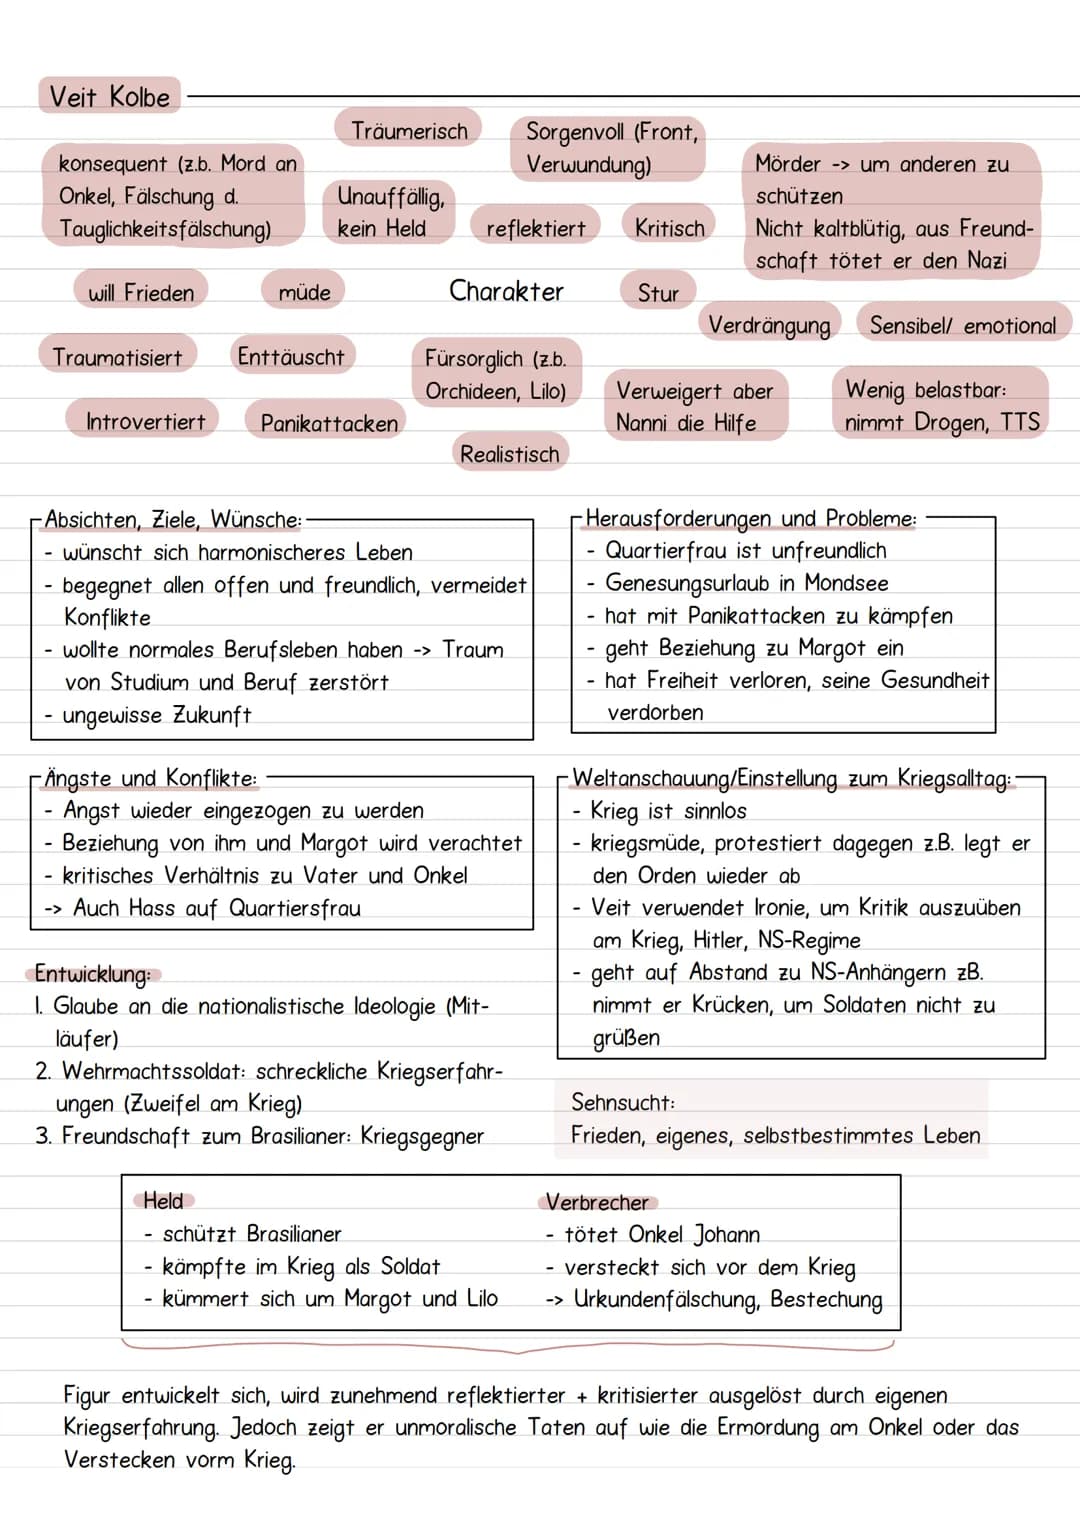 Veit Kolbe
Träumerisch
Sorgenvoll (Front,
Verwundung)
konsequent (z.b. Mord an
Onkel, Fälschung d.
Tauglichkeitsfälschung)
Unauffällig,
kein Held
reflektiert
Kritisch
Mörder -> um anderen zu
schützen
Nicht kaltblütig, aus Freund-
schaft tötet er den Nazi
will Frieden
müde
Charakter
Stur
Verdrängung
Sensibel/ emotional
Traumatisiert
Enttäuscht
Fürsorglich (z.b.
Orchideen, Lilo)
Verweigert aber
Nanni die Hilfe
Wenig belastbar:
nimmt Drogen, TTS
Introvertiert
Panikattacken
Realistisch
Absichten, Ziele, Wünsche:
- wünscht sich harmonischeres Leben
- begegnet allen offen und freundlich, vermeidet
Konflikte
- wollte normales Berufsleben haben -> Traum
von Studium und Beruf zerstört
- ungewisse Zukunft
Herausforderungen und Probleme:
- Quartierfrau ist unfreundlich
- Genesungsurlaub in Mondsee
- hat mit Panikattacken zu kämpfen
- geht Beziehung zu Margot ein
- hat Freiheit verloren, seine Gesundheit
verdorben
Ängste und Konflikte:
- Angst wieder eingezogen zu werden
- Beziehung von ihm und Margot wird verachtet
- kritisches Verhältnis zu Vater und Onkel
-> Auch Hass auf Quartiersfrau
Weltanschauung/Einstellung zum Kriegsalltag:
- Krieg ist sinnlos
- kriegsmüde, protestiert dagegen z.B. legt er
den Orden wieder ab
- Veit verwendet Ironie, um Kritik auszuüben
am Krieg, Hitler, NS-Regime
- geht auf Abstand zu NS-Anhängern zB.
nimmt er Krücken, um Soldaten nicht zu
grüßen
Entwicklung:
1. Glaube an die nationalistische Ideologie (Mit-
läufer)
2. Wehrmachtssoldat: schreckliche Kriegserfahr-
ungen (Zweifel am Krieg)
3. Freundschaft zum Brasilianer: Kriegsgegner
Sehnsucht:
Frieden, eigenes, selbstbestimmtes Leben
Held
- schützt Brasilianer
- kämpfte im Krieg als Soldat
- kümmert sich um Margot und Lilo
Verbrecher
- tötet Onkel Johann
- versteckt sich vor dem Krieg
-> Urkundenfälschung, Bestechung
Figur entwickelt sich, wird zunehmend reflektierter + kritisierter ausgelöst durch eigenen
Kriegserfahrung. Jedoch zeigt er unmoralische Taten auf wie die Ermordung am Onkel oder das
Verstecken vorm Krieg.